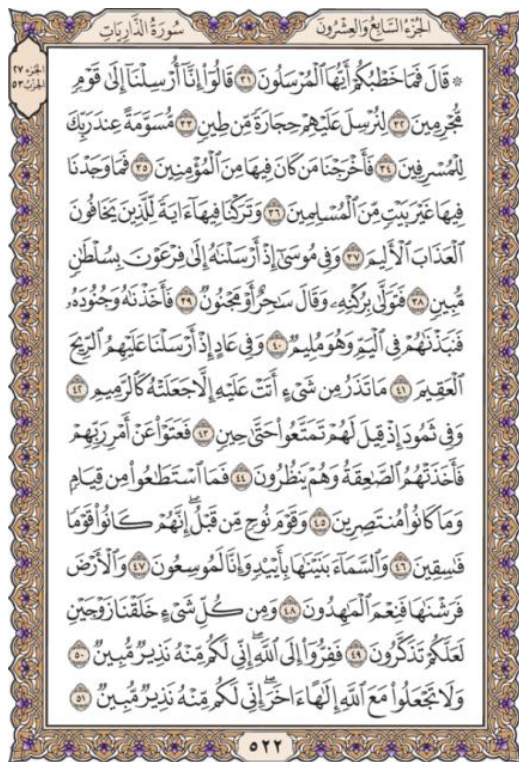 الجُزْءُ السَّابِعُ وَالعِشْرُونَ
سُورَةُ الذَّارِيَاتِ
الجزء ٢٧
الحزب ٥٣
۞ قَالَ فَمَا خَطْبُكُمْ أَيُّهَا ٱلْمُرْسَلُونَ ٣١ قَالُوٓا۟ إِنَّآ أُرْسِلْنَآ إِلَىٰ قَوْمٍ
مُّجْرِمِينَ ٣٢ لِنُرْسِلَ عَلَيْهِمْ حِجَارَةً مِّن طِينٍ ٣٣ مُّسَوَّمَةً عِندَ رَبِّكَ
لِلْمُسْرِفِينَ ٣٤ فَأَخْرَجْنَا مَن كَانَ فِيهَا مِنَ ٱلْمُؤْمِنِينَ ٣٥ فَمَا وَجَدْنَا
فِيهَا غَيْرَ بَيْتٍ مِّنَ ٱلْمُسْلِمِينَ ٣٦ وَتَرَكْنَا فِيهَآ ءَايَةً لِّلَّذِينَ يَخَافُونَ
ٱلْعَذَابَ ٱلْأَلِيمَ ٣٧ وَفِى مُوسَىٰٓ إِذْ أَرْسَلْنَـٰهُ إِلَىٰ فِرْعَوْنَ بِسُلْطَـٰنٍ
مُّبِينٍ ٣٨ فَتَوَلَّىٰ بِرُكْنِهِۦ وَقَالَ سَـٰحِرٌ أَوْ مَجْنُونٌ ٣٩ فَأَخَذْنَـٰهُ وَجُنُودَهُۥ
فَنَبَذْنَـٰهُمْ فِى ٱلْيَمِّ وَهُوَ مُلِيمٌ ٤٠ وَفِى عَادٍ إِذْ أَرْسَلْنَا عَلَيْهِمُ ٱلرِّيحَ
ٱلْعَقِيمَ ٤١ مَا تَذَرُ مِن شَىْءٍ أَتَتْ عَلَيْهِ إِلَّا جَعَلَتْهُ كَٱلرَّمِيمِ ٤٢
وَفِى ثَمُودَ إِذْ قِيلَ لَهُمْ تَمَتَّعُوا۟ حَتَّىٰ حِينٍ ٤٣ فَعَتَوْا۟ عَنْ أَمْرِ رَبِّهِمْ
فَأَخَذَتْهُمُ ٱلصَّـٰعِقَةُ وَهُمْ يَنظُرُونَ ٤٤ فَمَا ٱسْتَطَـٰعُوا۟ مِن قِيَامٍ
وَمَا كَانُوا۟ مُنتَصِرِينَ ٤٥ وَقَوْمَ نُوحٍ مِّن قَبْلُ ۖ إِنَّهُمْ كَانُوا۟ قَوْمًا
فَـٰسِقِينَ ٤٦ وَٱلسَّمَآءَ بَنَيْنَـٰهَا بِأَيْي۟دٍ وَإِنَّا لَمُوسِعُونَ ٤٧ وَٱلْأَرْضَ
فَرَشْنَـٰهَا فَنِعْمَ ٱلْمَـٰهِدُونَ ٤٨ وَمِن كُلِّ شَىْءٍ خَلَقْنَا زَوْجَيْنِ
لَعَلَّكُمْ تَذَكَّرُونَ ٤٩ فَفِرُّوٓا۟ إِلَى ٱللَّهِ ۖ إِنِّى لَكُم مِّنْهُ نَذِيرٌ مُّبِينٌ ٥٠
وَلَا تَجْعَلُوا۟ مَعَ ٱللَّهِ إِلَـٰهًا ءَاخَرَ ۖ إِنِّى لَكُم مِّنْهُ نَذِيرٌ مُّبِينٌ ٥١
٥٢٢